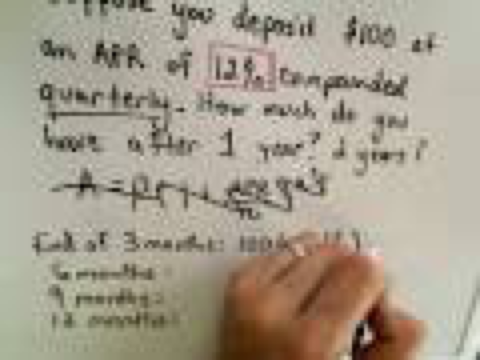 Suppose you deposit $100 at
an APR of 12% compounded
quarterly. How much do you
have after 1 year? 2 years?
End of 3 months: 100
6 months:
9 months:
12 months: